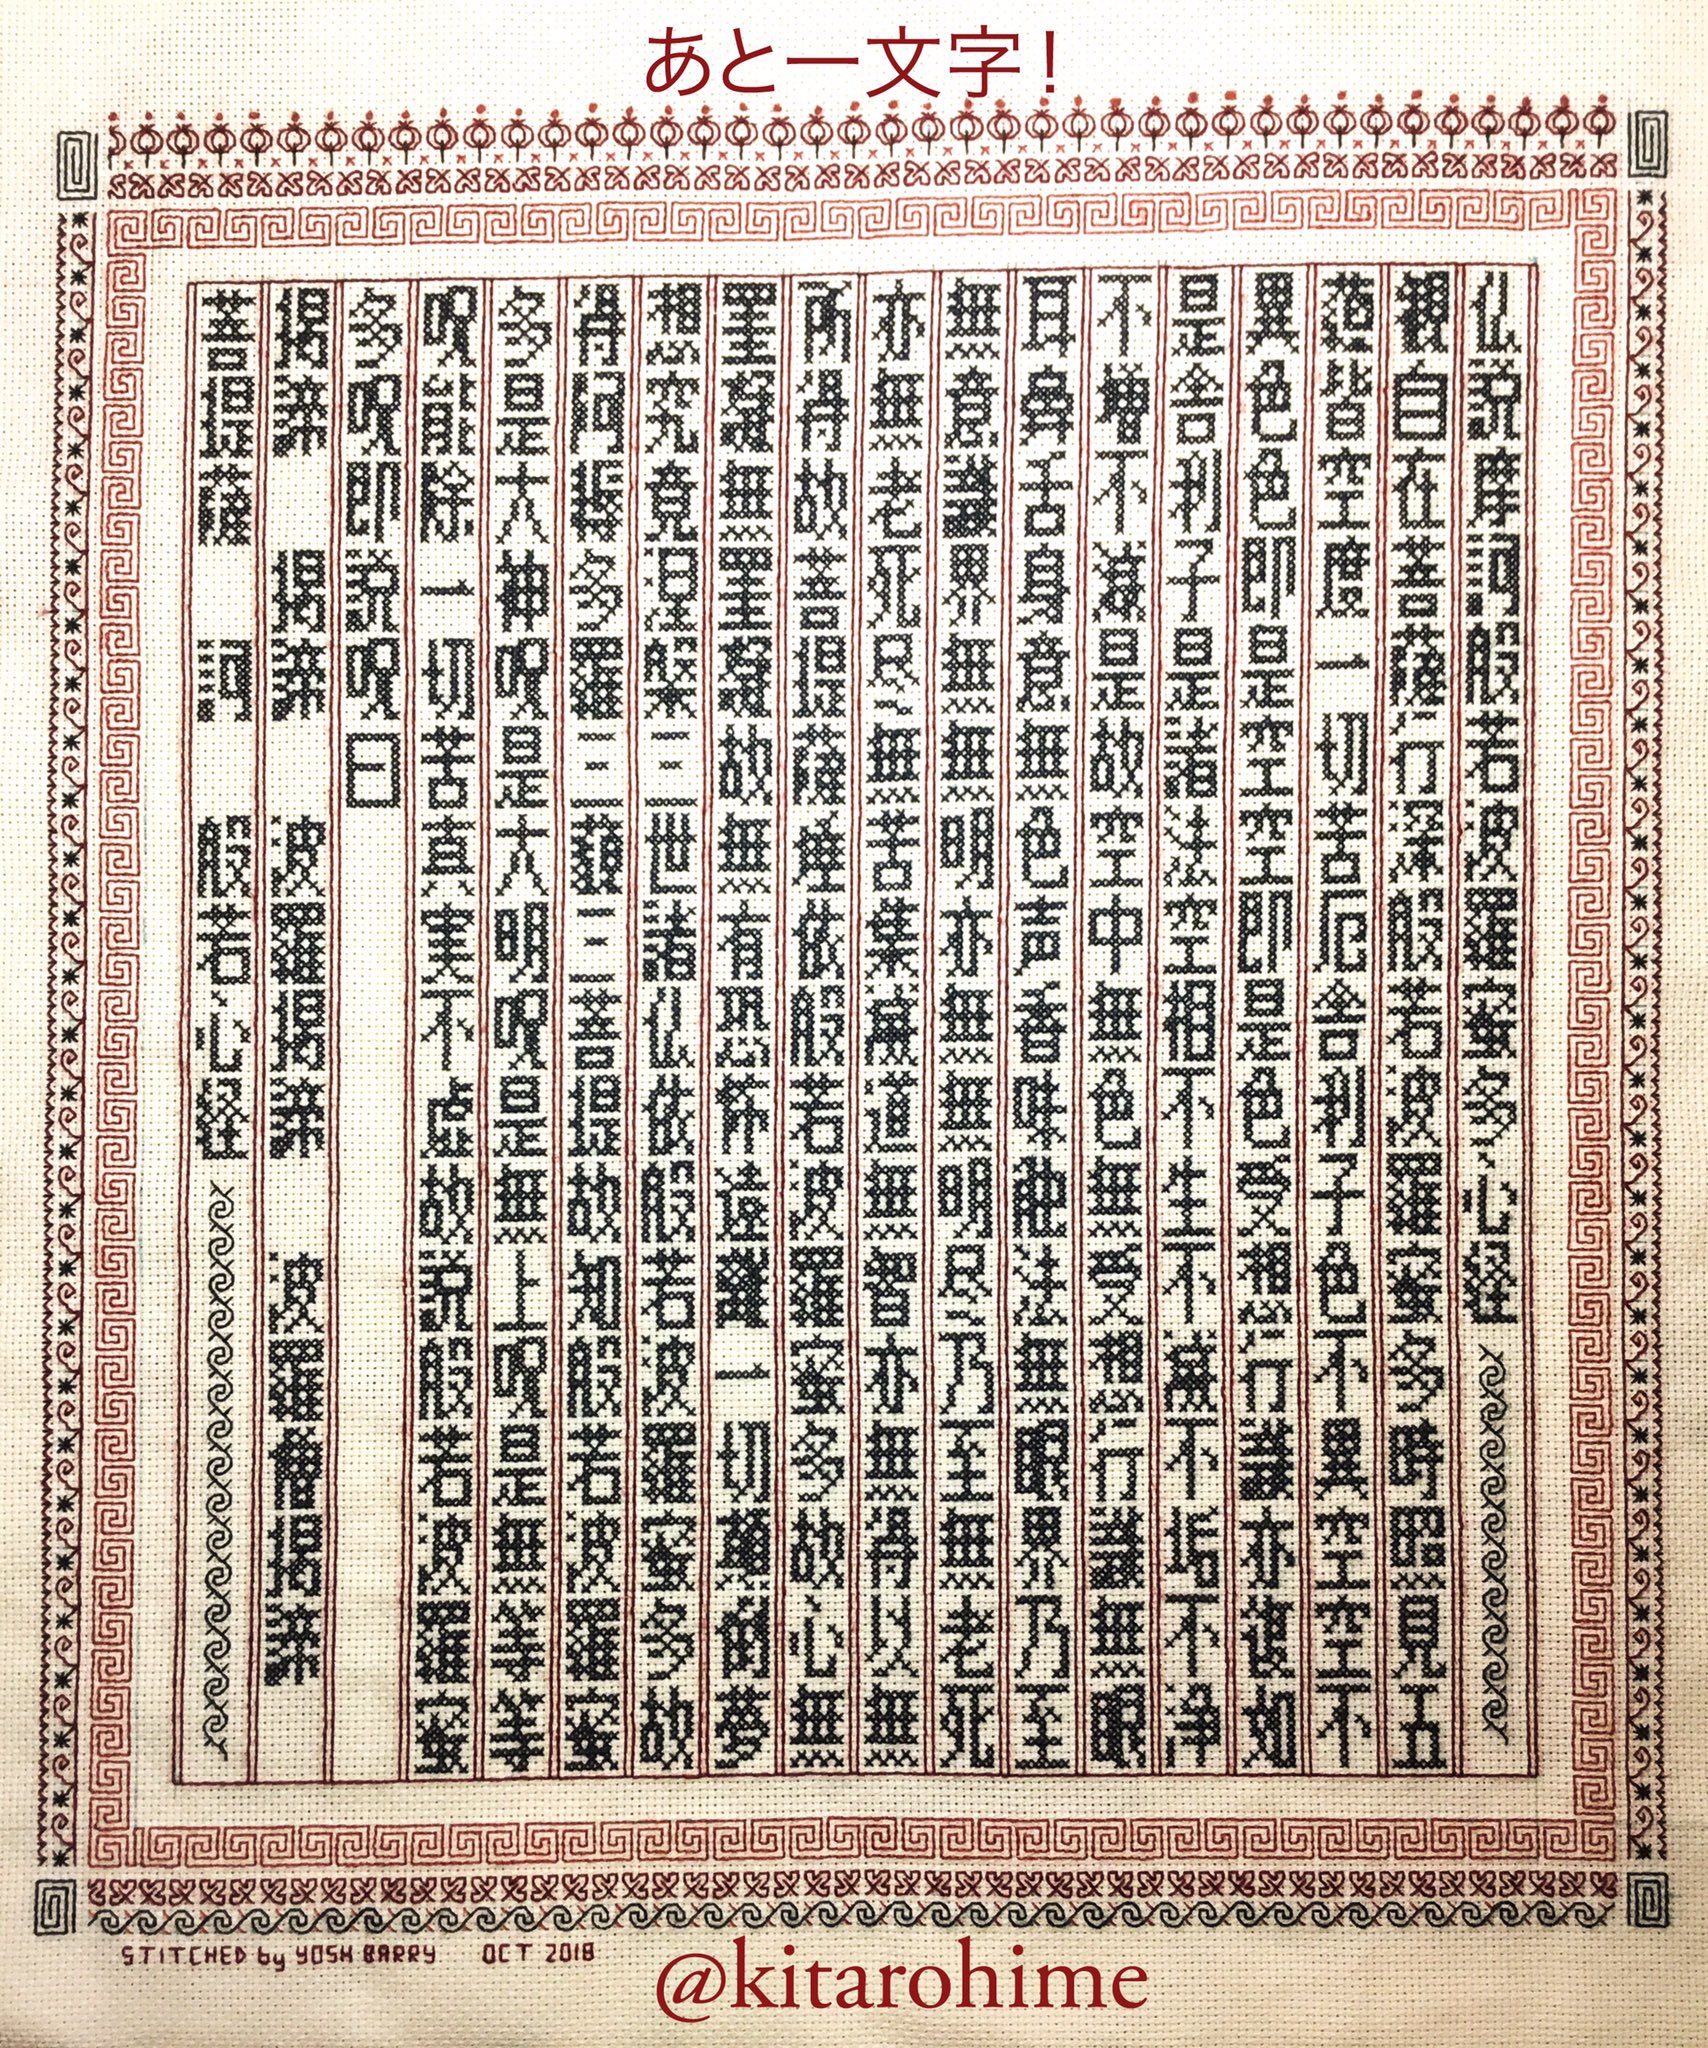 あと一文字!
仏説摩訶般若波羅蜜多心経
観自在菩薩行深般若波羅蜜多時照見五
蘊皆空度一切苦厄舎利子色不異空空不
異色色即是空空即是色受想行識亦復如
是舎利子是諸法空相不生不滅不垢不浄
不増不減是故空中無色無受想行識無眼
耳鼻舌身意無色声香味触法無眼界乃至
無意識界無無明亦無無明尽乃至無老死
亦無老死尽無苦集滅道無智亦無得以無
所得故菩提薩埵依般若波羅蜜多故心無
罣礙無罣礙故無有恐怖遠離一切顛倒夢
想究竟涅槃三世諸仏依般若波羅蜜多故
得阿耨多羅三藐三菩提故知般若波羅蜜
多是大神呪是大明呪是無上呪是無等等
呪能除一切苦真実不虚故説般若波羅蜜
多呪即説呪曰
羯諦 羯諦 波羅羯諦 波羅僧羯諦
菩提薩 訶 般若心経
STITCHED by YOSH BARRY OCT 2018
@kitarohime